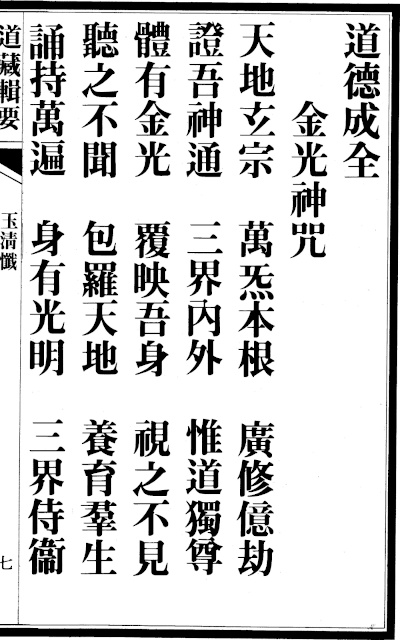 道德成全
金光神咒
天地玄宗　萬炁本根　廣修億劫
證吾神通　三界內外　惟道獨尊
體有金光　覆映吾身　視之不見
聽之不聞　包羅天地　養育羣生
誦持萬遍　身有光明　三界侍衞
道藏輯要　玉清懺　七